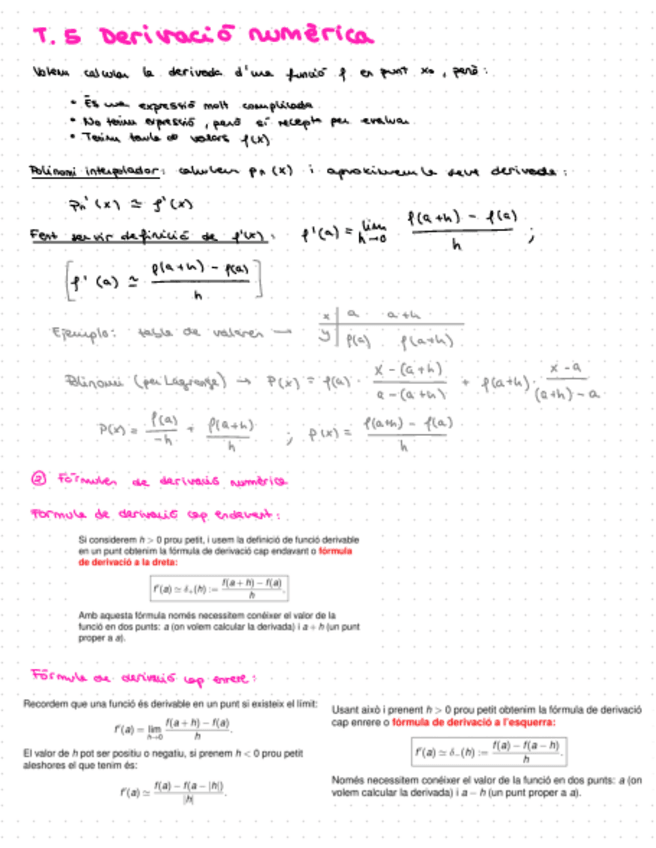 T.5 Derivació numèrica
Volem calcular la derivada d'una funció f en punt x₀, però:
• És una expressió molt complicada
• No tenim expressió, però sí recepta per avaluar
• Tenim taula de valors f(x)
Polinomi interpolador: calculem pₙ(x) i aproximem la seva derivada:
pₙ'(x) ≃ f'(x)
Fent servir definició de f'(x): f'(a) = lim h→0 (f(a+h) - f(a)) / h ;
[f'(a) ≃ (f(a+h) - f(a)) / h]
Ejemplo: table de valores → x | a a+h
y | f(a) f(a+h)
Polinomi (per Lagrange) → P(x) = f(a) · (x - (a+h)) / (a - (a+h)) + f(a+h) · (x - a) / ((a+h) - a)
P(x) = f(a) / -h + f(a+h) / h ; p(x) = (f(a+h) - f(a)) / h
② Fórmules de derivació numèrica
Formula de derivació cap endavant:
Si considerem h > 0 prou petit, i usem la definició de funció derivable
en un punt obtenim la fórmula de derivació cap endavant o fórmula
de derivació a la dreta:
f'(a) ≃ δ₊(h) := (f(a + h) − f(a)) / h.
Amb aquesta fórmula només necessitem conéixer el valor de la
función en dos punts: a (on volem calcular la derivada) i a + h (un punt
proper a a).
Fórmula de derivació cap enrere:
Recordem que una funció és derivable en un punt si existeix el límit:
f'(a) = lim h→0 (f(a + h) − f(a)) / h.
El valor de h pot ser positiu o negatiu, si prenem h < 0 prou petit
aleshores el que tenim és:
f'(a) ≃ (f(a) − f(a − |h|)) / |h|.
Usant això i prenent h > 0 prou petit obtenim la fórmula de derivació
cap enrere o fórmula de derivació a l'esquerra:
f'(a) ≃ δ₋(h) := (f(a) − f(a − h)) / h.
Només necessitem conéixer el valor de la función en dos punts: a (on
volem calcular la derivada) i a − h (un punt proper a a).